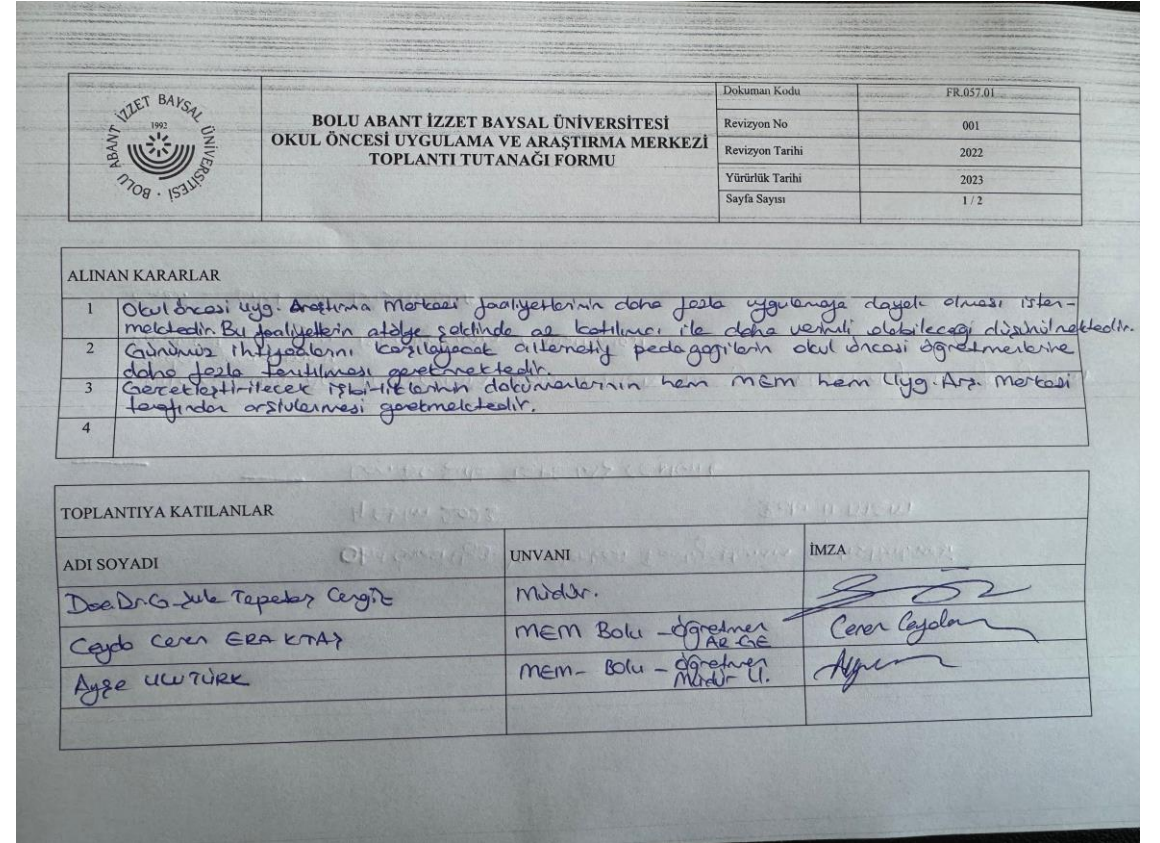 BOLU ABANT İZZET BAYSAL ÜNİVERSİTESİ
1992
BOLU ABANT İZZET BAYSAL ÜNİVERSİTESİ
OKUL ÖNCESİ UYGULAMA VE ARAŞTIRMA MERKEZİ
TOPLANTI TUTANAĞI FORMU
Dokuman Kodu FR.057.01
Revizyon No 001
Revizyon Tarihi 2022
Yürürlük Tarihi 2023
Sayfa Sayısı 1 / 2
ALINAN KARARLAR
1 Okul öncesi uyg. Araştırma Merkezi faaliyetlerinin daha fazla uygulamaya dayalı olması isten-
mektedir. Bu faaliyetlerin atölye şeklinde az katılımcı ile daha verimli olabileceği düşünülmektedir.
2 Günümüz ihtiyaçlarını karşılayacak alternatif pedagojilerin okul öncesi öğretmenlerine
daha fazla tanıtılması gerekmektedir.
3 Gerçekleştirilecek işbirliklerinin dokümanlarının hem MEM hem Uyg. Arş. Merkezi
tarafından arşivlenmesi gerekmektedir.
4
TOPLANTIYA KATILANLAR
ADI SOYADI UNVANI İMZA
Doç. Dr. G. Şule Tepetaş Cengiz Müdür.
Ceyda Ceren ERAKTAŞ MEM Bolu - öğretmen Ceren Ceyda
AR-GE
Ayşe ULUTÜRK MEM - Bolu - öğretmen
Müdür U.